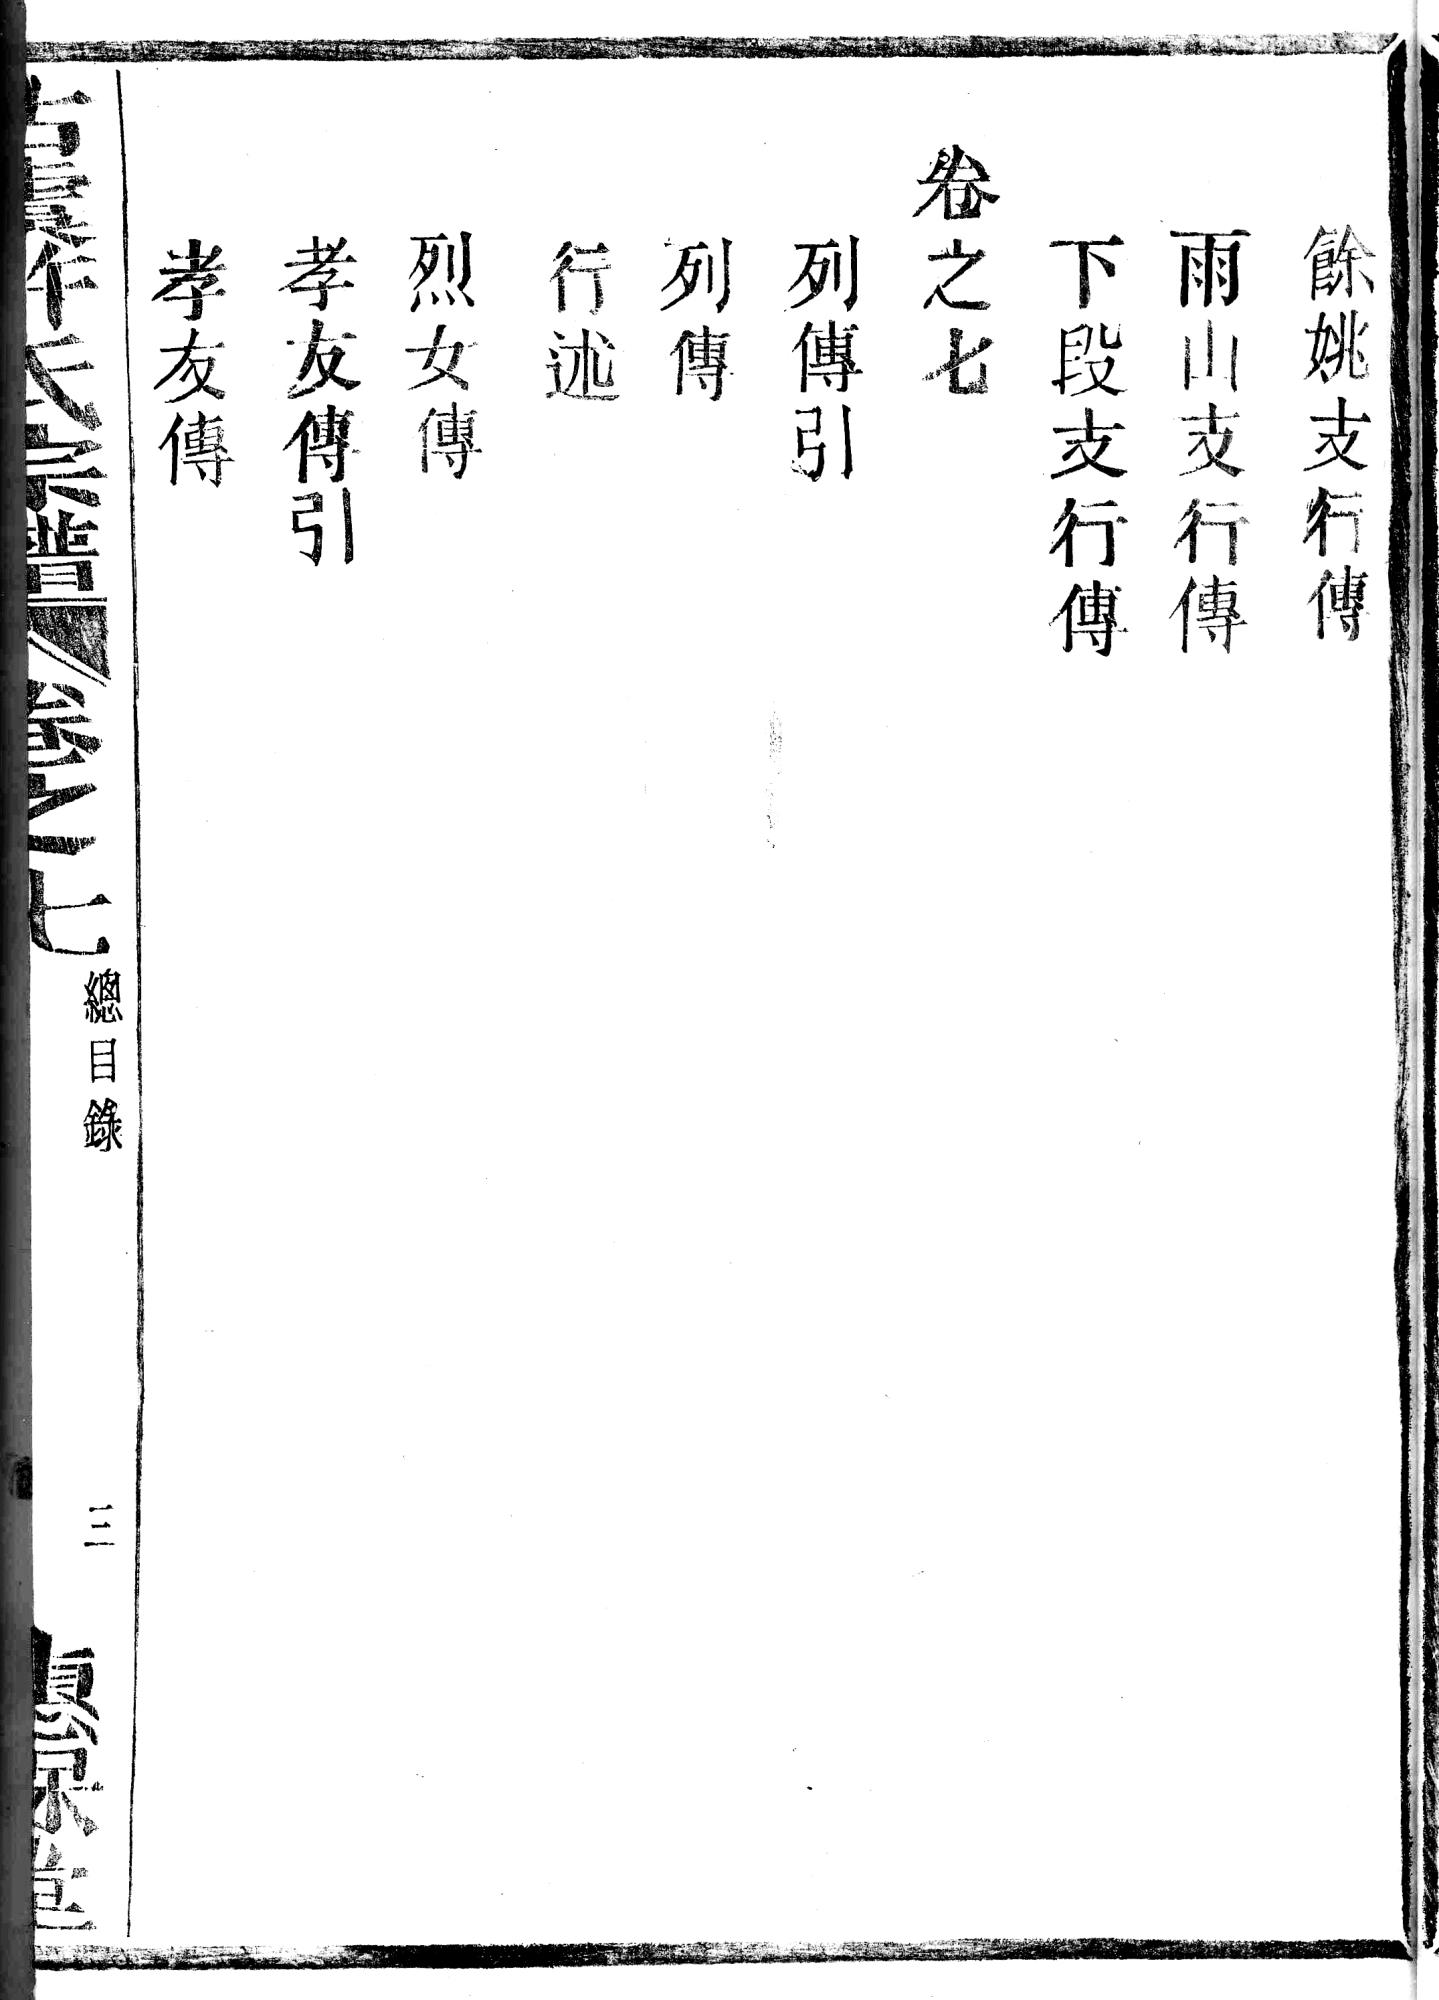 餘姚支行傳
雨山支行傳
下段支行傳
卷之七
列傳引
列傳
行述
烈女傳
孝友傳引
孝友傳
氏宗譜 卷之七
總目錄
三
堂